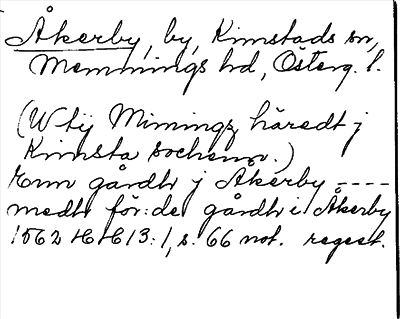 Åkerby, by, Kimstads sn,
Memmings hd, Österg. l.
(Wtij Mimingz häredt j
Kimsta sochenn.)
Enn gårdh j Åkerby ----
medh för:de gårdh i Åkerby
1562 HH 13:1, s. 66 not. regest.